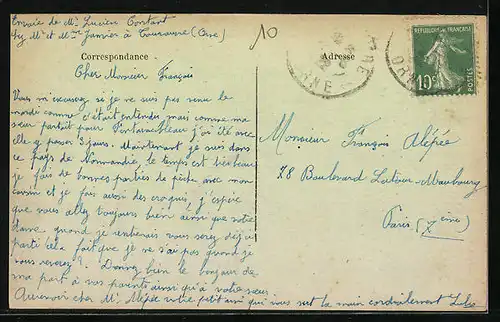 Envoie de Mr Lucien Constant
chez Mr et Mme Janvier à Tourouvre (Orne)
10
Correspondance
Adresse
RÉPUBLIQUE FRANÇAISE
10c
POSTES
ORNE
Cher Monsieur François
Vous m'excuserez si je ne suis pas venu le
monde comme c'était entendu mais comme ma
sœur partait pour Fontainebleau j'ai été avec
elle y passer 3 jours. Maintenant je suis dans
ce pays de Normandie, le temps est très beau
je fais de bonnes parties de pêche avec mon
cousin et je fais aussi des croquis, j'espère
que vous allez toujours bien ainsi que votre
dame quand je rentirais vous serez déjà
parti cela fait que je ne s'ai pas quand je
vous reverez? Donnez bien le bonjour de
ma part à vos parents ainsi qu'à votre sœur.
Aurevoir cher Mr votre petit ami qui vous sert la main cordialement
Monsieur François Alépée
78 Boulevard Latour-Maubourg
Paris